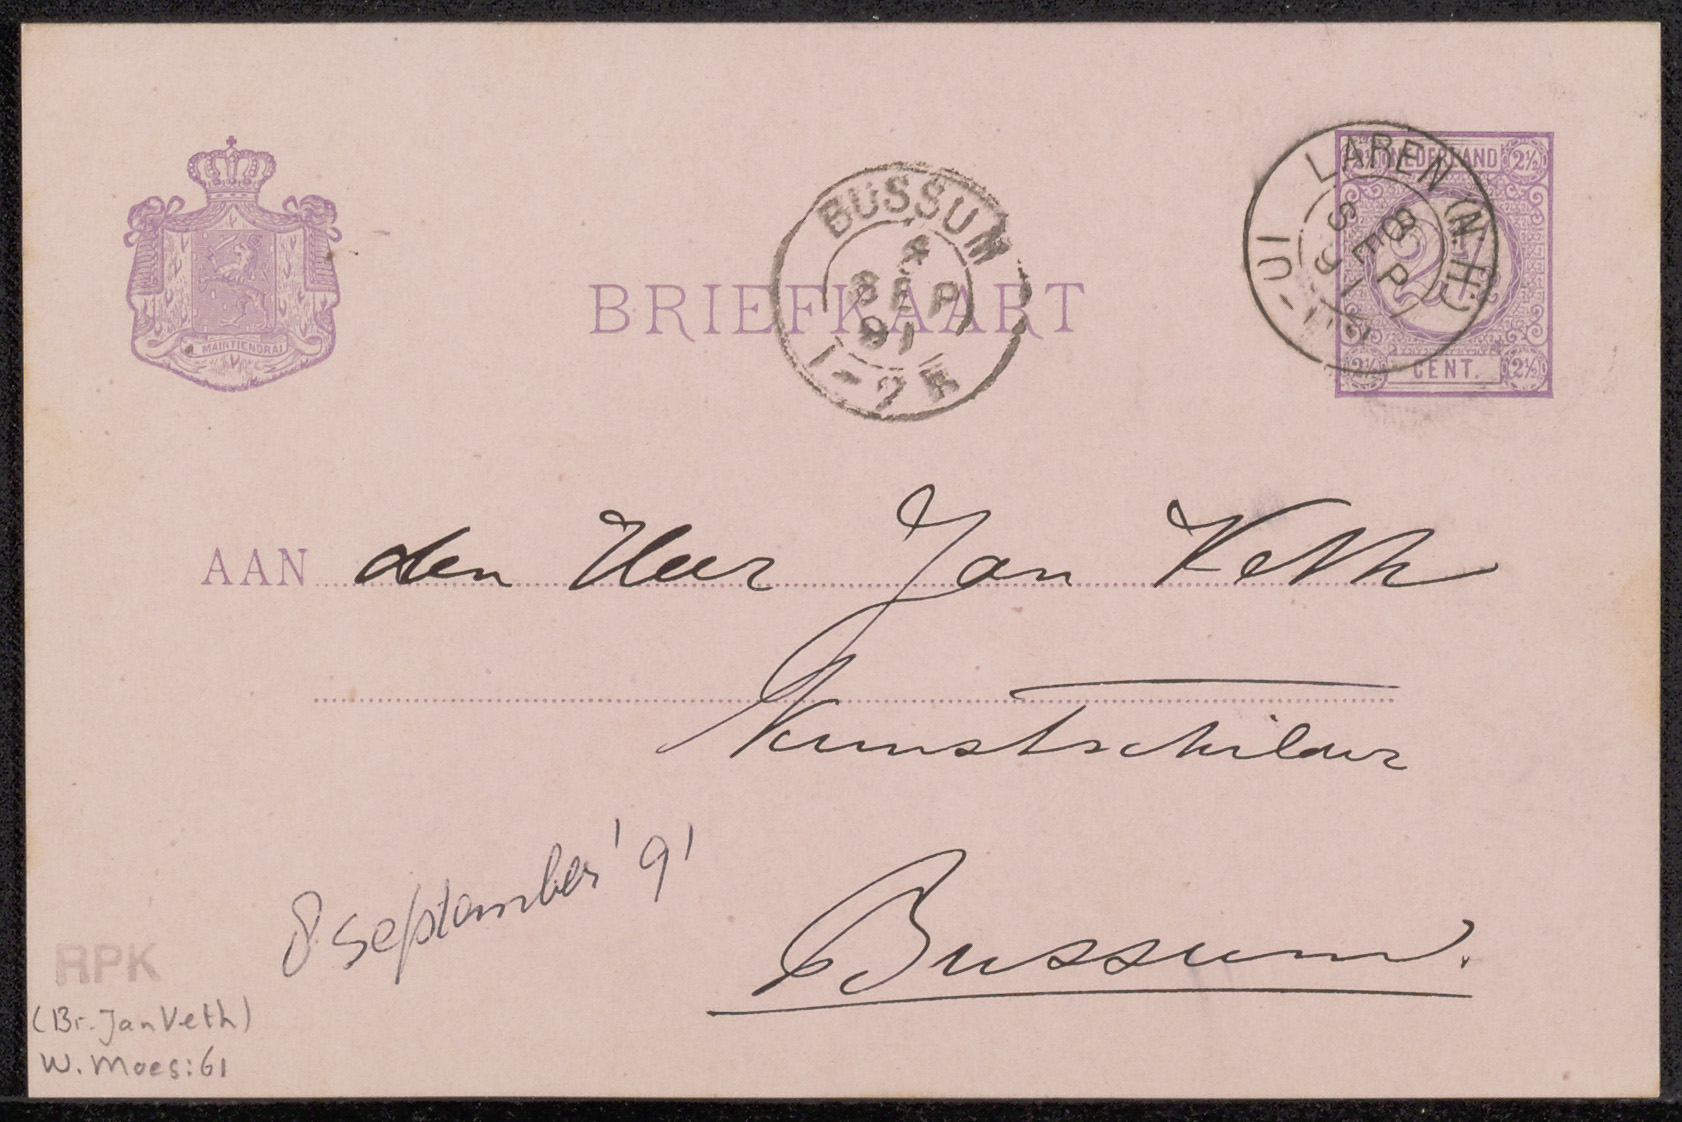 NEDERLAND 2½
LAREN (N.H.)
8 SEP 91
CENT. 2½
2½
BUSSUM
8 SEP 91
1-2
JE MAINTIENDRAI
BRIEFKAART
AAN den Heer Jan Veth
Kunstschilder
Bussum.
8 september '91
RPK
(Br. Jan Veth)
W. Moes: 61